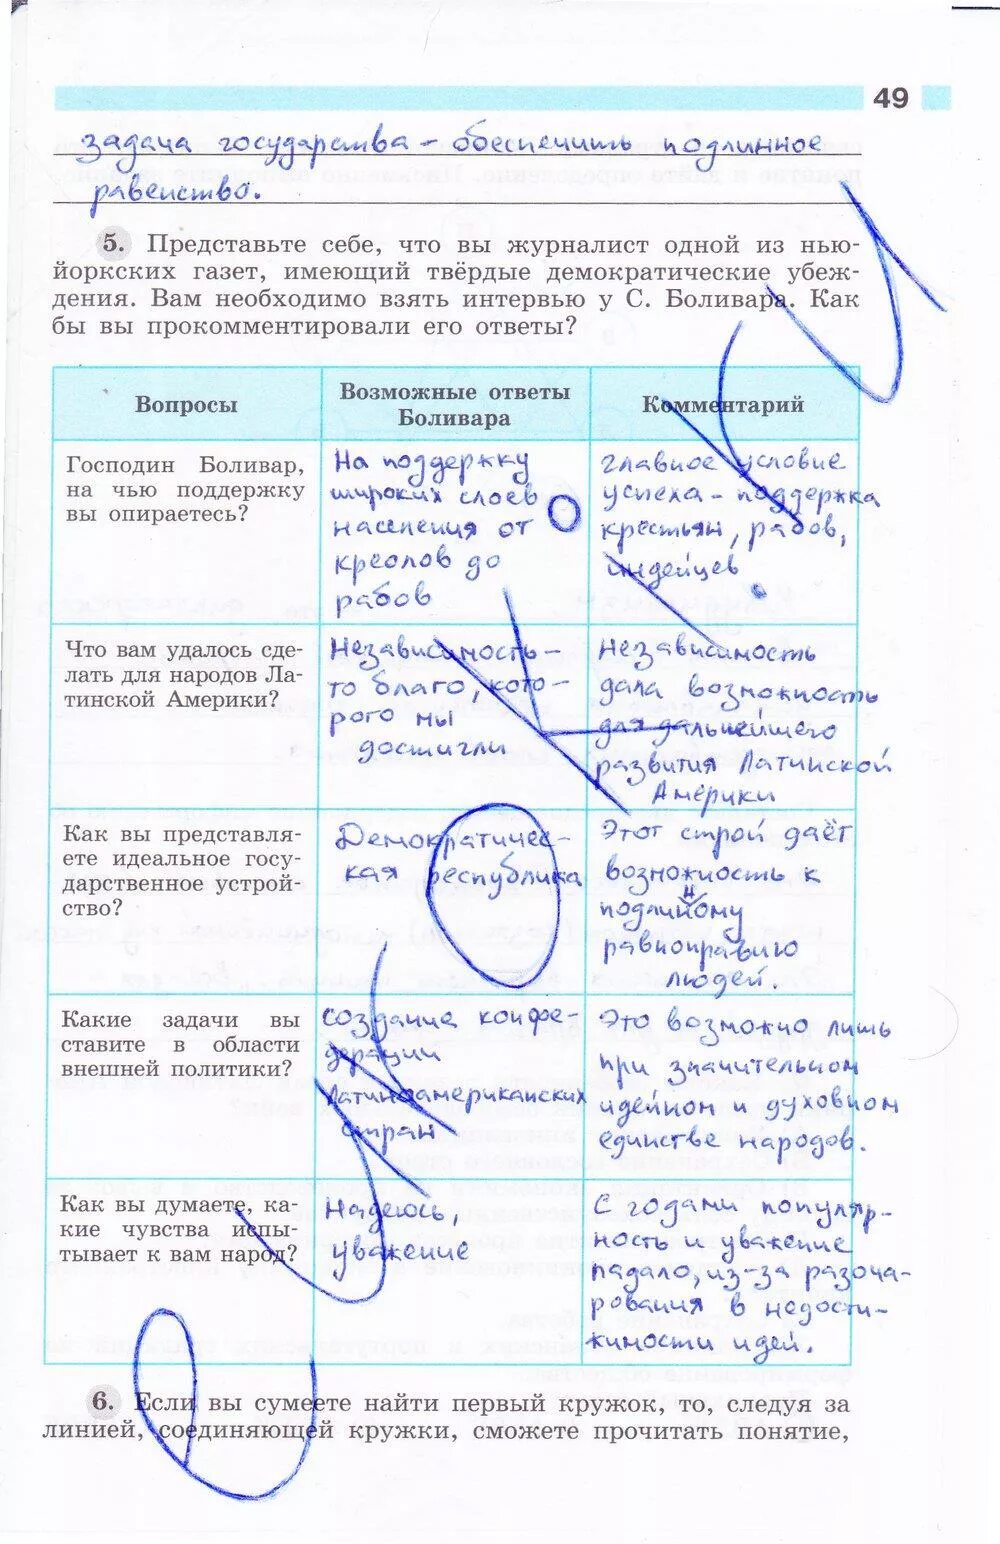 49
задача государства - обеспечить подлинное
равенство.
5. Представьте себе, что вы журналист одной из нью-
йоркских газет, имеющий твёрдые демократические убеж-
дения. Вам необходимо взять интервью у С. Боливара. Как
бы вы прокомментировали его ответы?
Вопросы
Возможные ответы
Боливара
Комментарий
Господин Боливар,
на чью поддержку
вы опираетесь?
На поддержку
широких слоев
населения от
креолов до
рабов
главное условие
успеха - поддержка
крестьян, рабов,
индейцев
Что вам удалось сде-
лать для народов Ла-
тинской Америки?
Независимость -
то благо, кото-
рого мы
достигли
Независимость
дала возможность
для дальнейшего
развития Латинской
Америки
Как вы представля-
ете идеальное госу-
дарственное устрой-
ство?
Демократичес-
кая республика
Этот строй даёт
возможность к
подлинному
равноправию
людей.
Какие задачи вы
ставите в области
внешней политики?
создание конфе-
дерации
Латиноамериканских
стран
Это возможно лишь
при значительном
идейном и духовном
единстве народов.
Как вы думаете, ка-
кие чувства испы-
тывает к вам народ?
Надеюсь,
уважение
С годами популяр-
ность и уважение
падало, из-за разоча-
рования в недости-
жимости идей.
6. Если вы сумеете найти первый кружок, то, следуя за
линией, соединяющей кружки, сможете прочитать понятие,